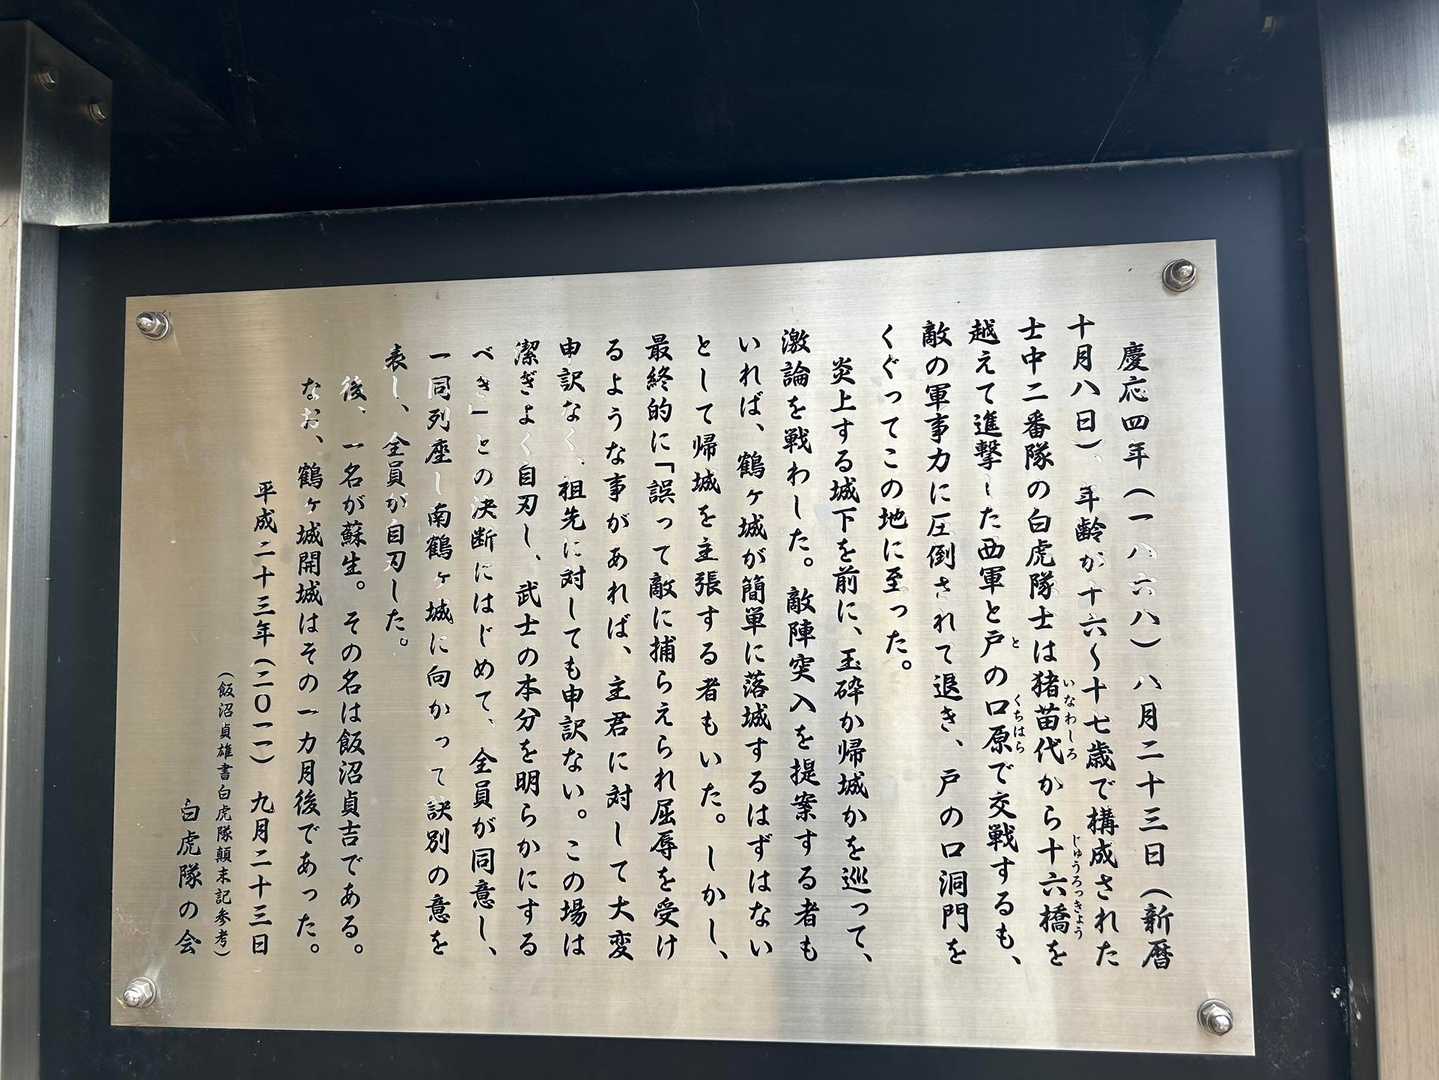 慶応四年(一八六八)八月二十三日(新暦
十月八日)、年齢が十六〜十七歳で構成された
士中二番隊の白虎隊士は猪苗代から十六橋を
いなわしろ
じゅうろっきょう
越えて進撃した西軍と戸の口原で交戦するも、
と
くちはら
敵の軍事力に圧倒されて退き、戸の口洞門を
くぐってこの地に至った。
炎上する城下を前に、玉砕か帰城かを巡って、
激論を戦わした。敵陣突入を提案する者も
いれば、鶴ヶ城が簡単に落城するはずはない
として帰城を主張する者もいた。しかし、
最終的に「誤って敵に捕らえられ屈辱を受け
るような事があれば、主君に対して大変
申訳なく、祖先に対しても申訳ない。この場は
潔ぎよく自刃し、武士の本分を明らかにする
べき」との決断にはじめて、全員が同意し、
一同列座し南鶴ヶ城に向かって訣別の意を
表し、全員が自刃した。
後、一名が蘇生。その名は飯沼貞吉である。
なお、鶴ヶ城開城はその一カ月後であった。
平成二十三年(二〇一一) 九月二十三日
(飯沼貞雄書白虎隊顛末記参考)
白虎隊の会